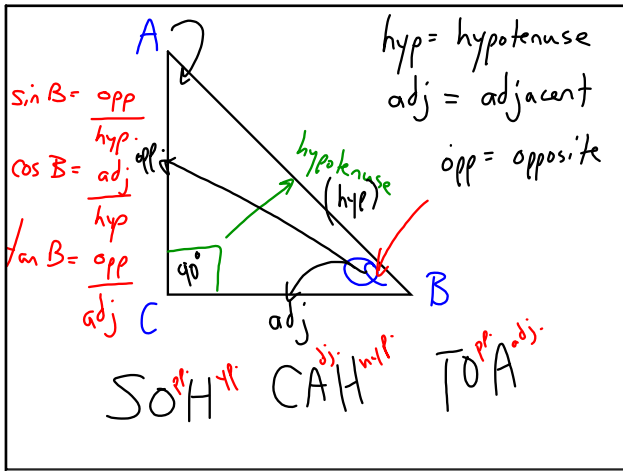 A
hyp = hypotenuse
adj = adjacent
opp = opposite
sin B = opp
hyp.
cos B = adj
hyp
tan B = opp
adj
opp.
hypotenuse
(hyp)
90°
C
adj
B
SOpp.Hyp. CAdj.Hhyp. TOpp.Aadj.